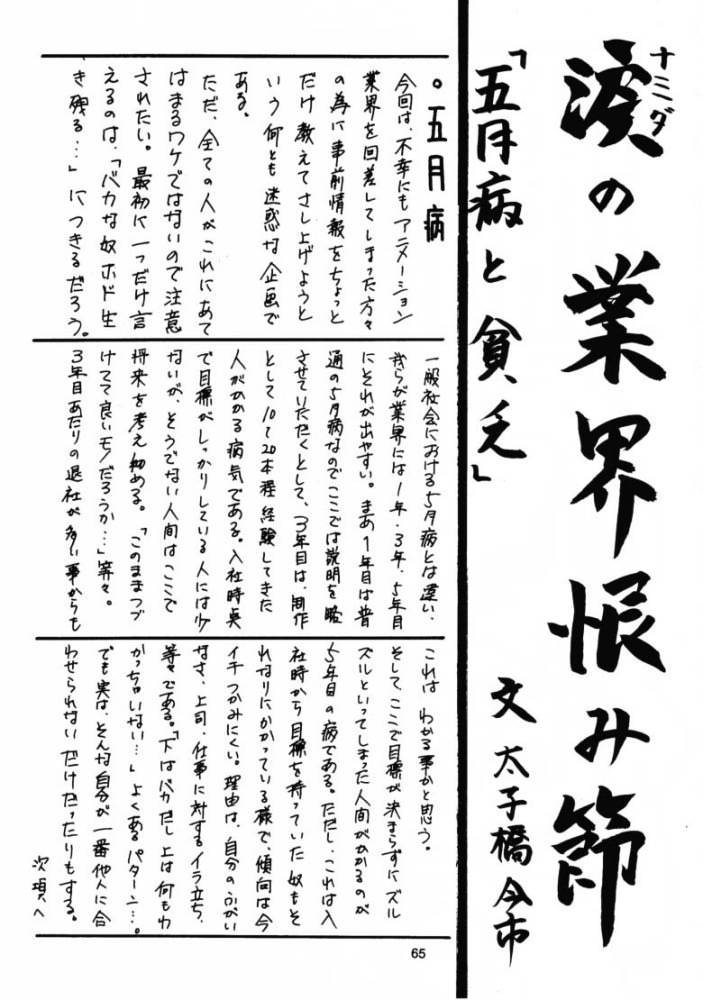 ナミダ
涙の業界恨み節
「五月病と貧乏」
文 太子橋今市
・五月病
今回は、不幸にもアニメーション
業界を目差してしまった方々
の為に事前情報をちょっと
だけ教えてさし上げようと
いう何とも迷惑な企画で
ある。
ただ、全ての人がこれにあて
はまるワケではないので注意
されたい。最初に一つだけ言
えるのは、「バカな奴ホド生
き残る…」につきるだろう。
一般社会における5月病とは違い、
我らが業界には1年・3年・5年目
にそれが出やすい。まあ1年目は普
通の5月病なのでここでは説明を略
させていただくとして、3年目は、制作
として10〜20本程経験してきた
人がかかる病気である。入社時点
で目標がしっかりしている人には少
ないが、そうでない人間はここで
将来を考え始める。「このままつづ
けてて良いモノだろうか…」等々。
3年目あたりの退社が多い事からも
これは わかる事かと思う。
そして、ここで目標が決まらずにズル
ズルといってしまった人間がかかるのが
5年目の病である。ただし、これは入
社時から目標を持っていた奴もそ
れなりにかかっている様で、傾向は今
イチつかみにくい。理由は、自分のふがい
なさ、上司、仕事に対するイラ立ち、
等々である。「下はバカだし上は何もわ
かっちゃいない…」よくあるパターン…。
でも実は、そんな自分が一番他人に合
わせられないだけだったりもする。
次項へ
65